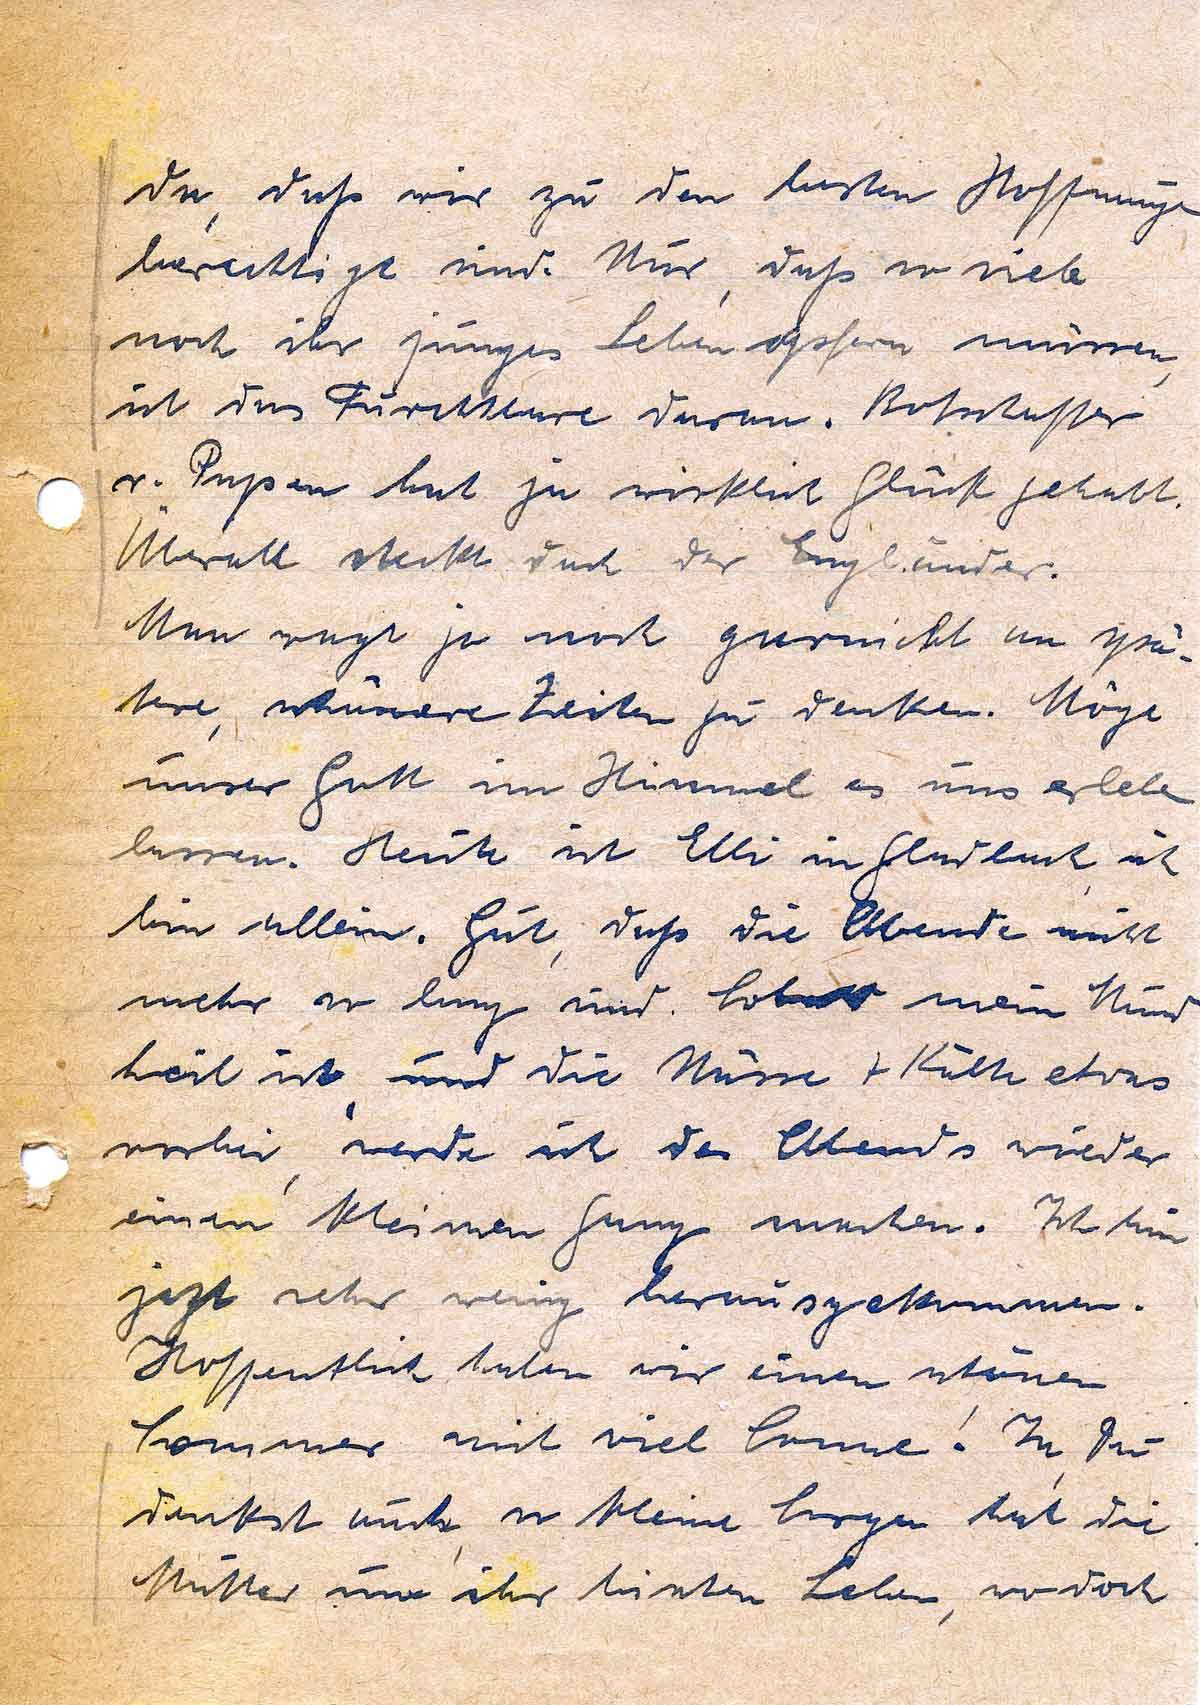 da, daß wir zu den besten Hoffnunge
berechtigt sind. Nur, daß so viele
noch ihr junges Leben opfern müssen,
ist das Furchtbare daran. Botschafter
v. Papen hat ja wirklich Glück gehabt.
Überall steckt doch der Engländer.
Man wagt ja noch garnicht an spä-
tere, schönere Zeiten zu denken. Möge
unser Gott im Himmel es uns erlebe
lassen. Heute ist Elli in Gladbach, ich
bin allein. Gut, daß die Abende nicht
mehr so lang sind. Sobald mein Mund
heil ist, und die Nässe + Kälte etwas
vorbei, werde ich des Abends wieder
einen kleinen Gang machen. Ich bin
jetzt sehr wenig herausgekommen.
Hoffentlich haben wir einen schönen
Sommer mit viel Sonne! Ja, Du
denkst auch, so kleine Sorgen hat die
Mutter um ihr bischen Leben, wo doch